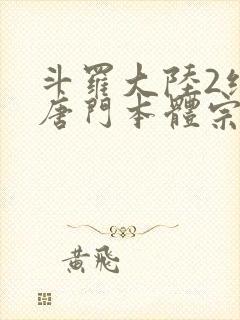 斗羅大陸2
唐門本體宗
黃飛